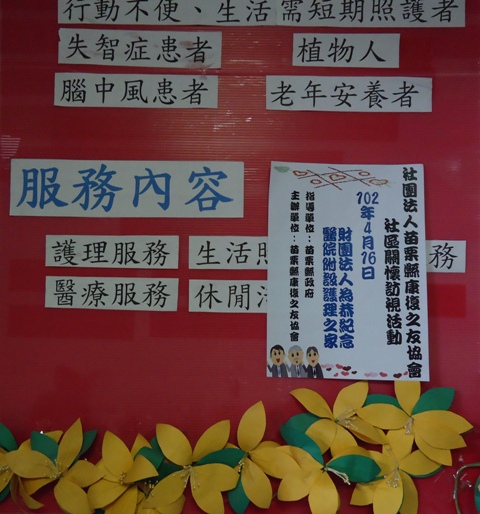 行動不便、生活需短期照護者
失智症患者
植物人
腦中風患者
老年安養者
服務內容
護理服務
生活照
務
醫療服務
休閒活
社團法人苗栗縣康復之友協會
社區關懷訪視活動
102年4月16日
財團法人為恭紀念
醫院附設護理之家
指導單位：苗栗縣政府
主辦單位：苗栗縣康復之友協會